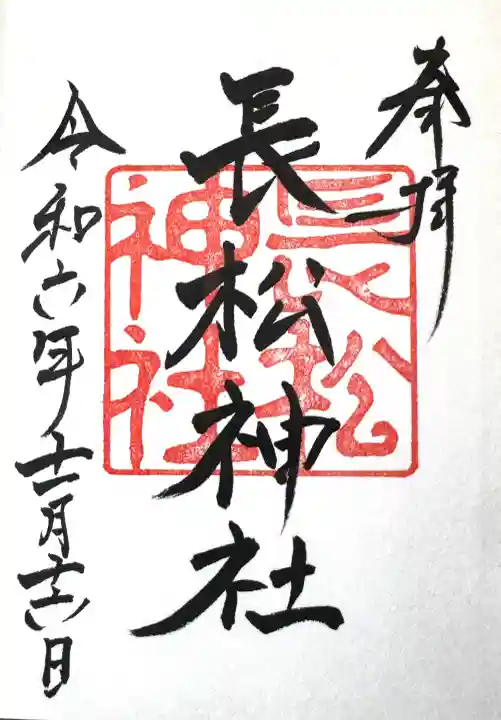 奉拝
長松神社
長松
神社
令和六年十一月十六日